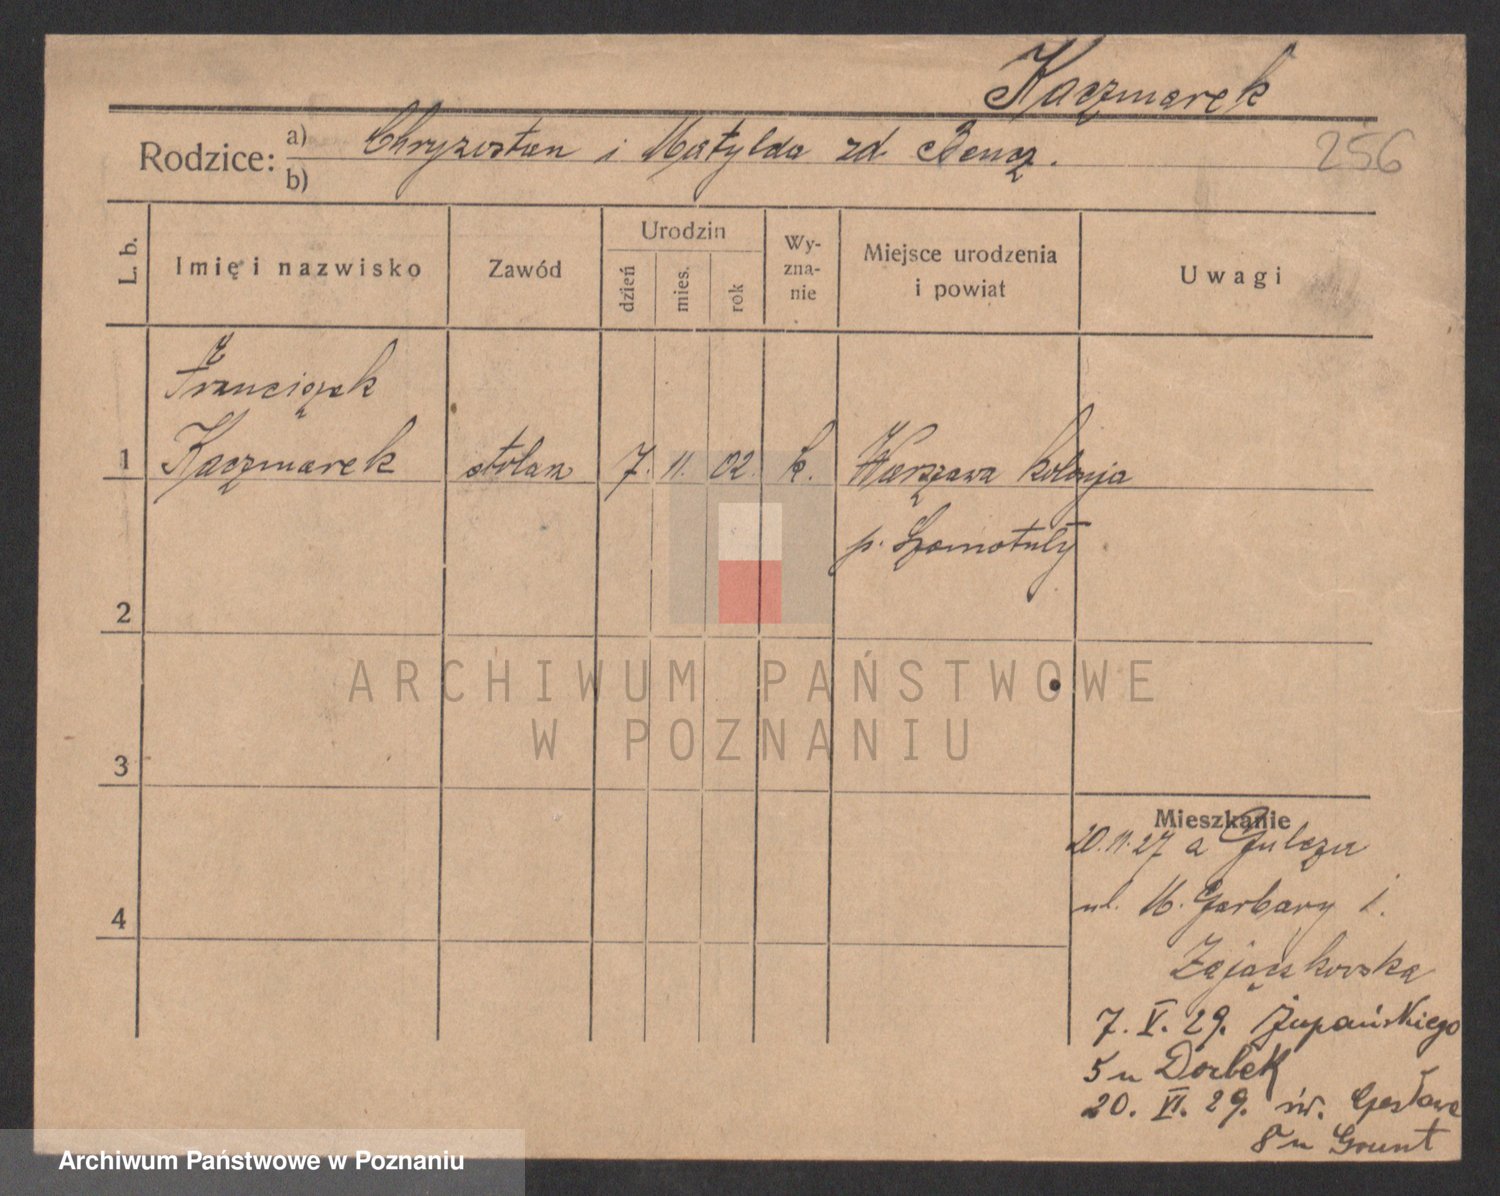 Kaczmarek
Rodzice: a) Chryzostom i Matylda zd. Bencz.
b)
256
L. b.
Imię i nazwisko
Zawód
Urodzin
dzień
mies.
rok
Wy-
zna-
nie
Miejsce urodzenia
i powiat
Uwagi
Franciszek
1 Kaczmarek stolarz 7. 11. 02. k. Warszawa kolonja
p. Szamotuły
2
ARCHIWUM PAŃSTWOWE
W POZNANIU
3
Mieszkanie
20.11.27 a Gulczu
4
ul. M. Garbary 1.
Zajączkowska
7. V. 29. Żupańskiego
5 u Dorbek
20. VI. 29. św. Czesława
8 u Grunt
Archiwum Państwowe w Poznaniu